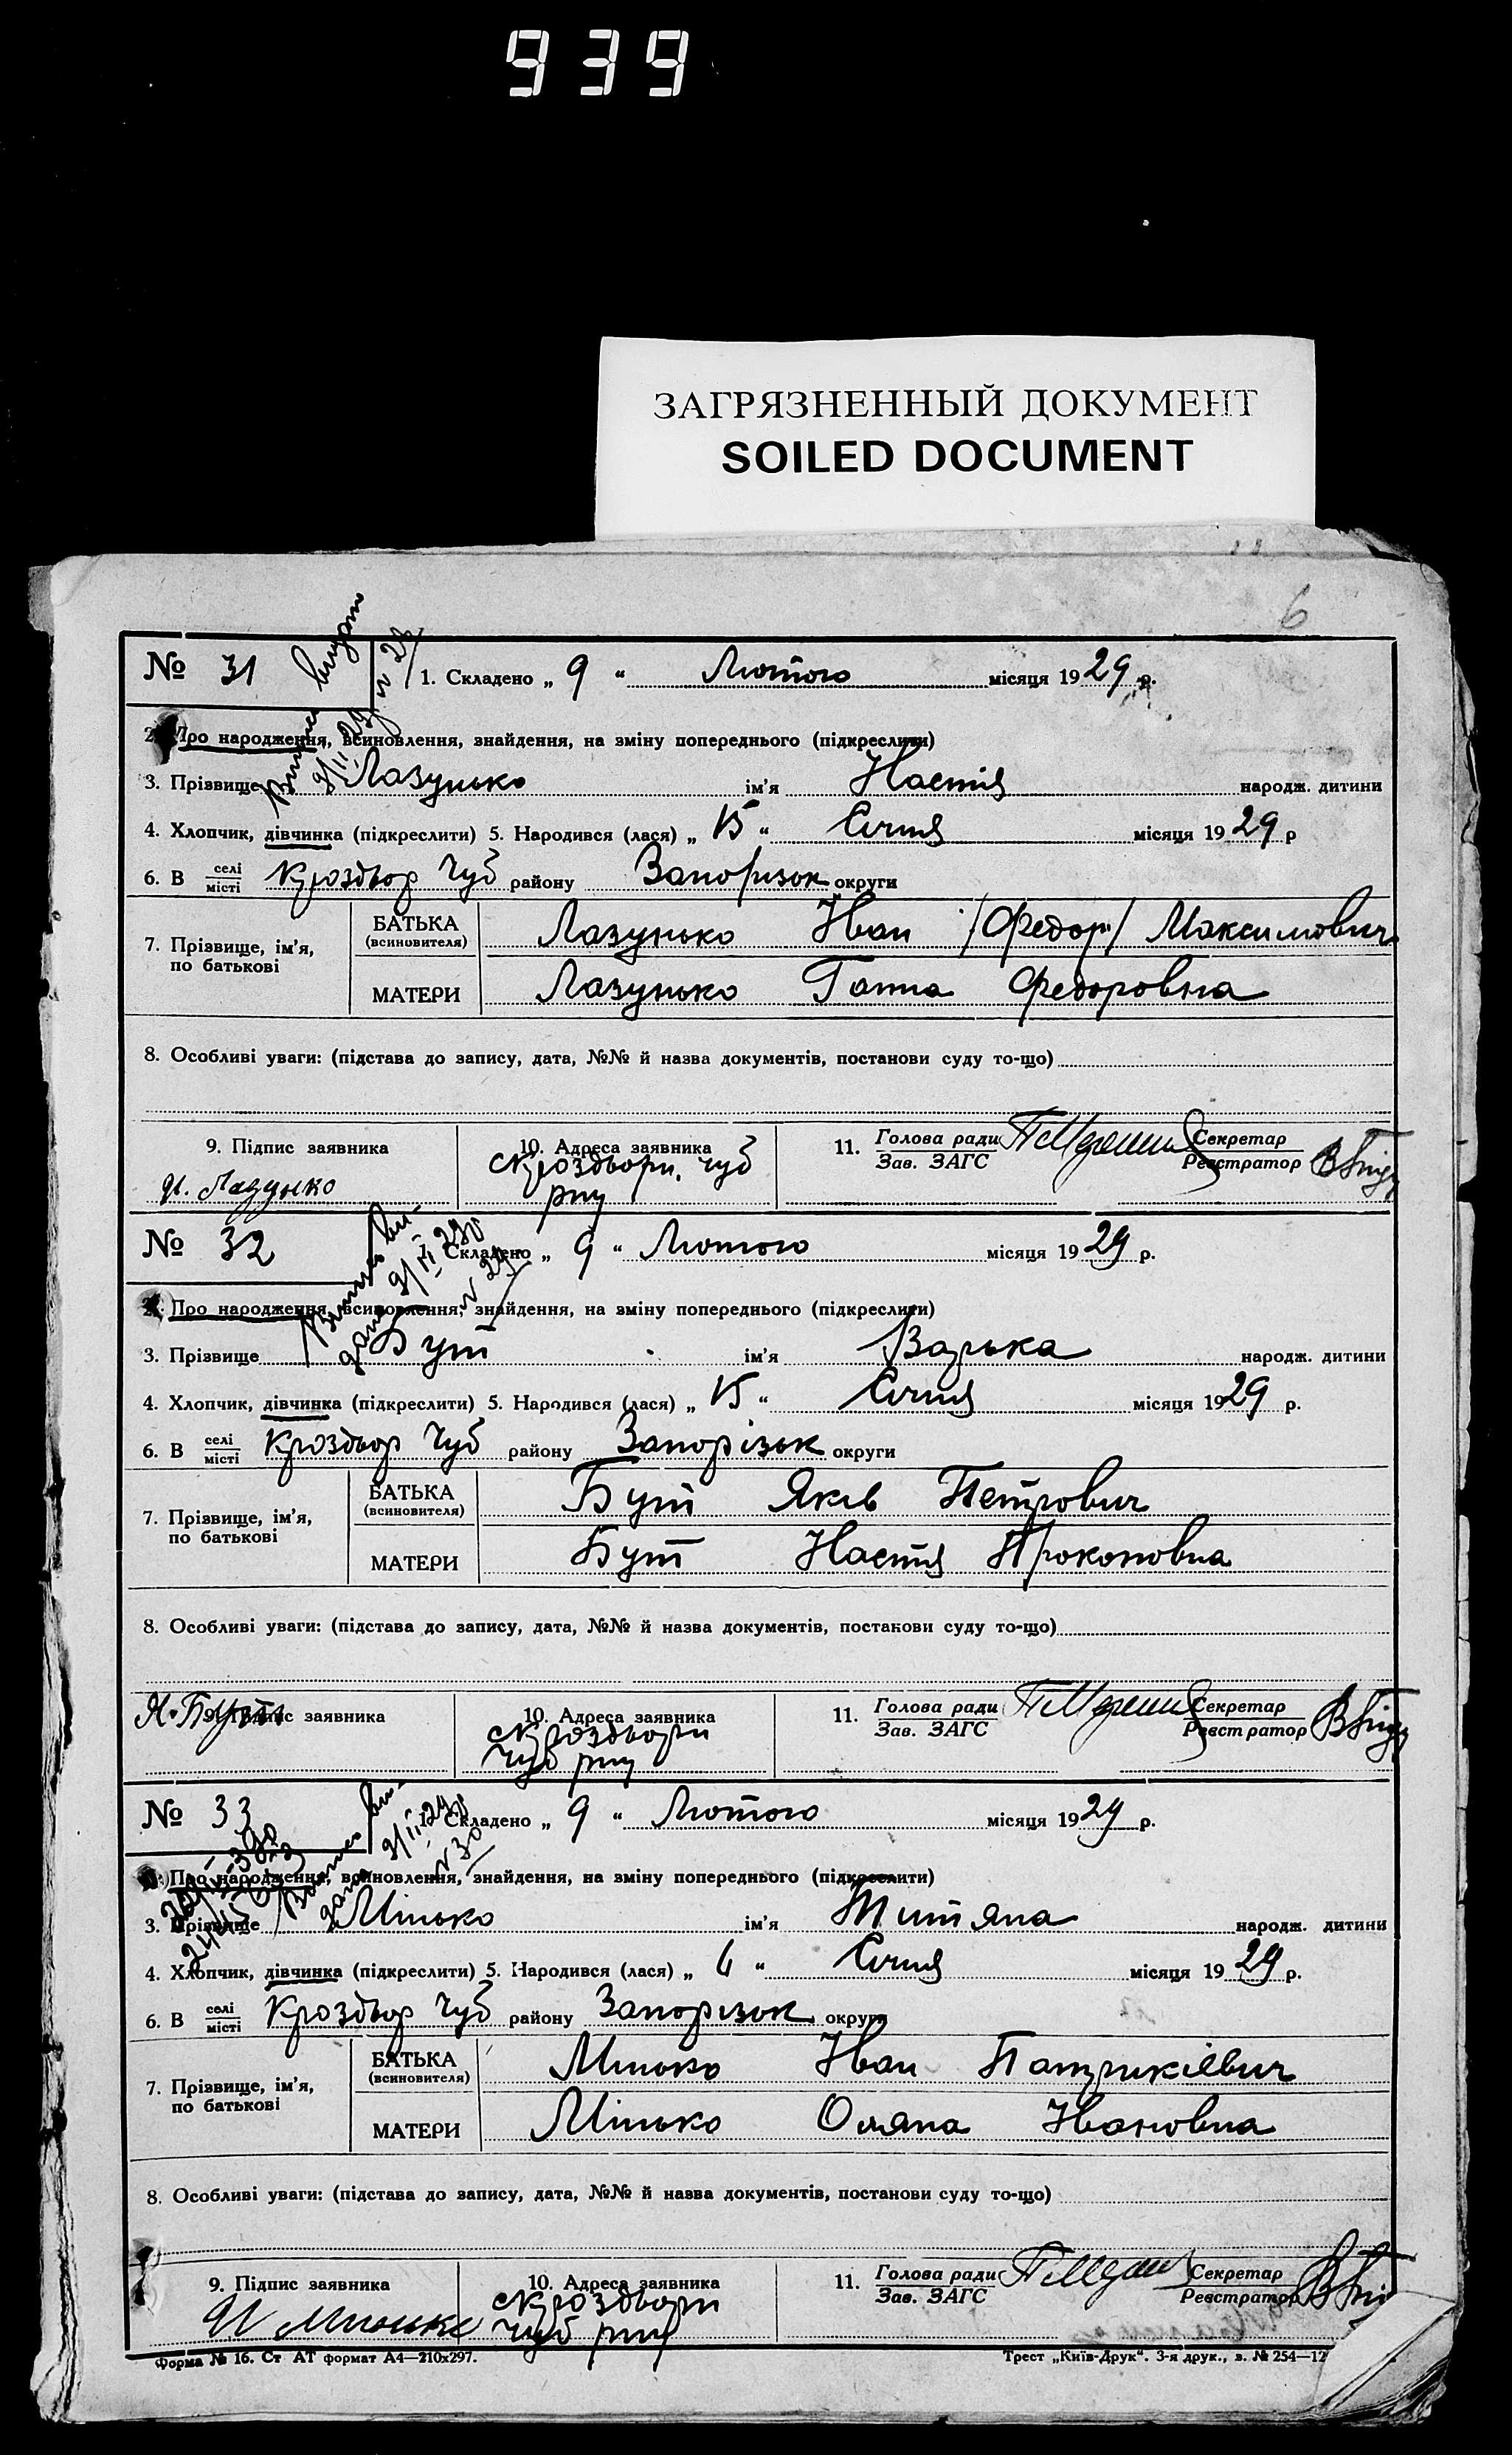 939
ЗАГРЯЗНЕННЫЙ ДОКУМЕНТ
SOILED DOCUMENT
6
№ 31
1. Складено „ 9 “ Лютого місяця 1929 р.
2. Про народження, всиновлення, знайдення, на зміну попереднього (підкреслити)
3. Прізвище Лазунько ім’я Настя народж. дитини
4. Хлопчик, дівчинка (підкреслити) 5. Народився (лася) „ 15 “ Січня місяця 1929 р
6. В селі місті Кроздвор Чуб району Запорізьк округи
7. Прізвище, ім’я, по батькові
БАТЬКА (всиновителя) Лазунько Іван /Федор/ Максимович
МАТЕРИ Лазунько Ганна Федоровна
8. Особливі уваги: (підстава до запису, дата, №№ й назва документів, постанови суду то-що)
9. Підпис заявника
10. Адреса заявника
11. Голова ради Секретар
Зав. ЗАГС Реєстратор
Лазунько
Чуб
рну
№ 32
Складено „ 9 “ Лютого місяця 1929 р.
2. Про народження, всиновлення, знайдення, на зміну попереднього (підкреслити)
3. Прізвище Бут ім’я Варька народж. дитини
4. Хлопчик, дівчинка (підкреслити) 5. Народився (лася) „ 15 “ Січня місяця 1929 р.
6. В селі місті Кроздвор Чуб району Запорізьк округи
7. Прізвище, ім’я, по батькові
БАТЬКА (всиновителя) Бут Яків Петрович
МАТЕРИ Бут Настя Прокоповна
8. Особливі уваги: (підстава до запису, дата, №№ й назва документів, постанови суду то-що)
Я. Бут
9. Підпис заявника
10. Адреса заявника
11. Голова ради Секретар
Зав. ЗАГС Реєстратор
Чуб рну
№ 33
1. Складено „ 9 “ Лютого місяця 1929 р.
2. Про народження, всиновлення, знайдення, на зміну попереднього (підкреслити)
3. Прізвище Мінько ім’я Титяна народж. дитини
4. Хлопчик, дівчинка (підкреслити) 5. Народився (лася) „ 6 “ Січня місяця 1929 р.
6. В селі місті Кроздвор Чуб району Запорізьк округи
7. Прізвище, ім’я, по батькові
БАТЬКА (всиновителя) Мінько Іван Патрикієвич
МАТЕРИ Мінько Оляна Івановна
8. Особливі уваги: (підстава до запису, дата, №№ й назва документів, постанови суду то-що)
9. Підпис заявника
10. Адреса заявника
11. Голова ради Секретар
Зав. ЗАГС Реєстратор
Чуб рну
Форма № 16. Ст АТ формат А4—210х297.
Трест „Київ-Друк“. 3-я друк., з. № 254—12